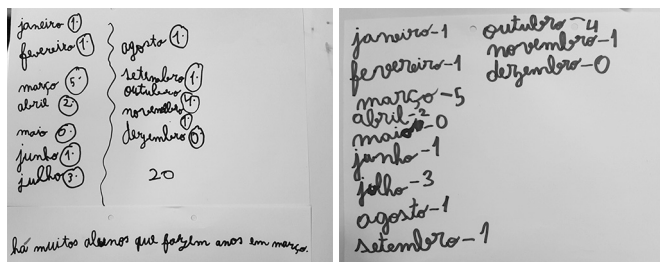 janeiro 1.
fevereiro 1.
março 5.
abril 2.
maio 0.
junho 1.
julho 3.
agosto 1.
setembro 1.
outubro 4.
novembro 1.
dezembro 0.
20
há muitos alunos que fazem anos em março.
janeiro-1
fevereiro-1
março-5
abril-2
maio-0
junho-1
julho-3
agosto-1
setembro-1
outubro-4
novembro-1
dezembro-0